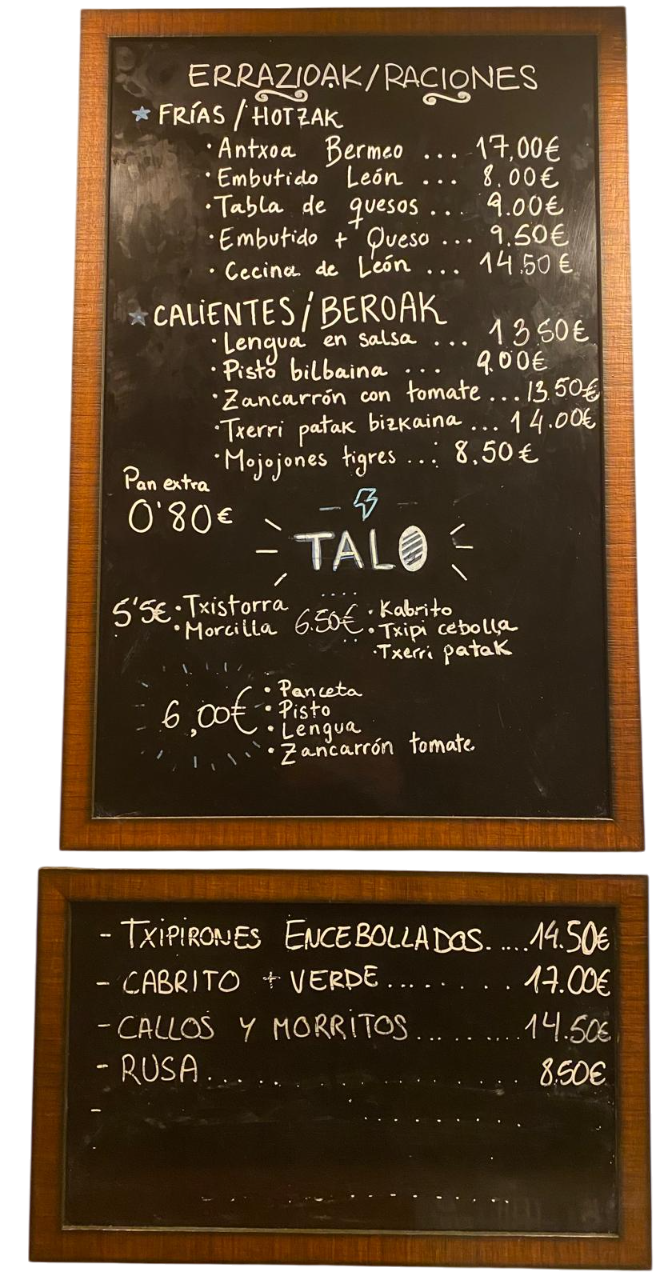 ERRAZIOAK/RACIONES
★ FRÍAS / HOTZAK
· Antxoa Bermeo ... 17,00€
· Embutido León ... 8.00€
· Tabla de quesos ... 9.00€
· Embutido + Queso ... 9.50€
· Cecina de León ... 14.50€
★ CALIENTES / BEROAK
· Lengua en salsa ... 13.50€
· Pisto bilbaina ... 9.00€
· Zancarrón con tomate ... 13.50€
· Txerri patak bizkaina ... 14.00€
· Mojojones tigres ... 8,50€
Pan extra
0'80€
TALO
5'5€ · Txistorra
· Morcilla
6.50€ · Kabrito
· Txipi cebolla
· Txerri patak
6,00€ · Panceta
· Pisto
· Lengua
· Zancarrón tomate
- TXIPIRONES ENCEBOLLADOS.....14.50€
- CABRITO + VERDE........17.00€
- CALLOS Y MORRITOS........14.50€
- RUSA................8.50€
-